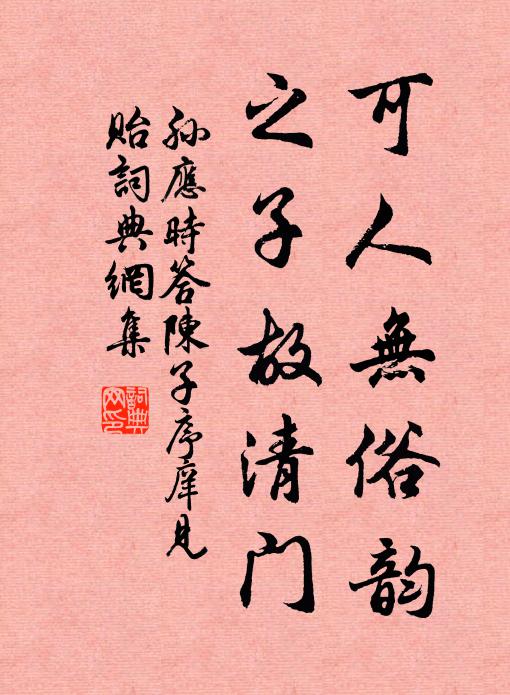 可人無俗韵
之子故清門
孫應時答陳子序庠見
貽詞典網集
詞典網印